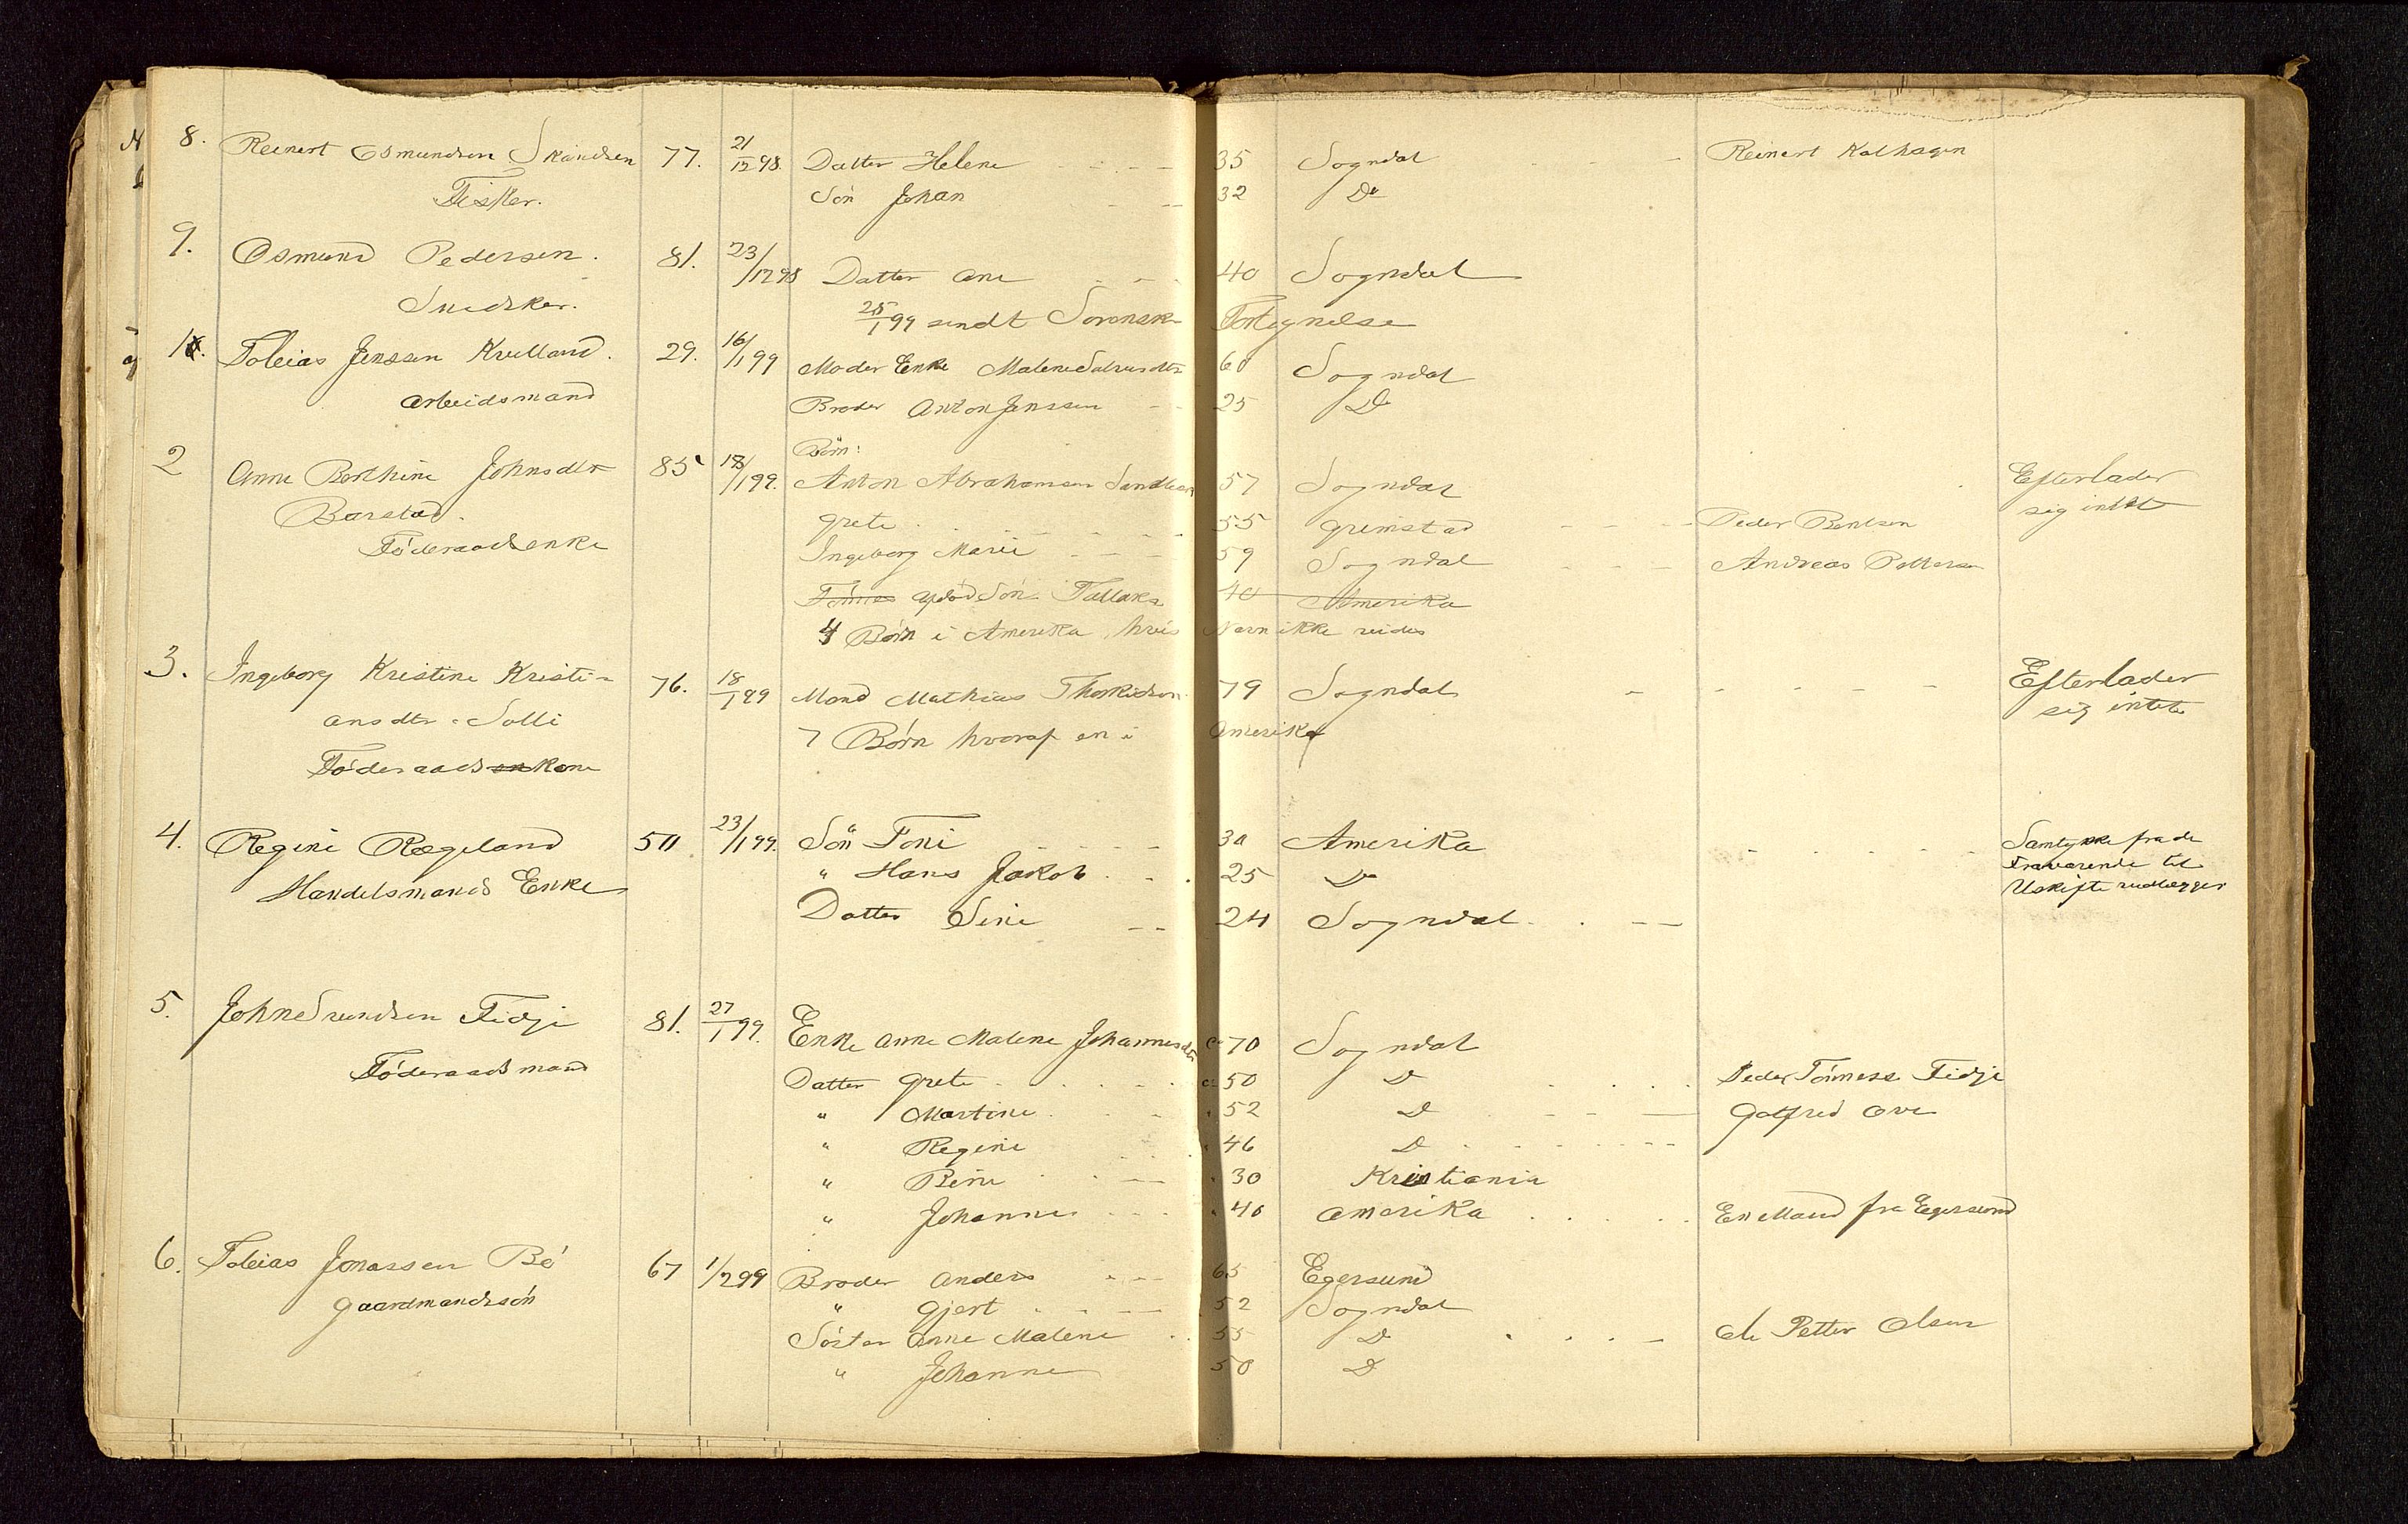 8. Reinert Osmundsen Skandsen 77. 21/12 98. Datter Helene 35 Sogndal Reinert Kalhagen
Fisker. Søn Johan 32 Do
9. Osmund Pedersen. 81. 23/12 98 Datter Ane 40 Sogndal
Snedker. 25/1 99 sendt Sorensk Fortegnelse
1. Tobias Jenssen Kvelland. 29. 16/1 99 Moder Enke Malene 60 Sogndal
Arbeidsmand Broder Anton Jenssen 25 Do
Børn:
2 Anne Berthine Johnsdtr 85 18/1 99. Anton Abrahamsen 57 Sogndal Efterlader
Barstad. Grete 55 Grimstad Peder Bentsen sig intet
Föderaadsenke Ingeborg Marie 59 Sogndal Andreas Pettersen
Tønnes Søn 40 Amerika
4 Børn i Amerika hvis Navn ikke vides
3. Ingeborg Kristine Kristi- 76. 18/1 99 Mand Mathias Thorkildsen 79 Sogndal Efterlader
ansdtr. Solli 7 Børn hvoraf en i Amerika sig intet
Föderaads en kone
4. Regine Rægeland 50 23/1 99. Søn Toni 30 Amerika Samtykke fra de
Handelsmands Enke " Hans Jakob 25 Do Fraværende til
Datter Sine 24 Sogndal Uskifte vedlægges
5. John Fidje 81. 27/1 99. Enke Anne Malene Johannesdtr ca 70 Sogndal
Föderaadsmand Datter Grete ca 50 Do Peder Tönness Fidje
" Martine " 52 Do Gotfred Ove
" Regine " 46 Do
" Bine " 30 Kristiania
" Johanne " 40 Amerika En Mand fra Egersund
6. Tobias Jonassen Bö 67 1/2 99 Broder Anders 65 Egersund
Gaardmandssön " Gjert 52 Sogndal
Söster Anne Malene 55 Do Ole Petter Olsen
" Johanne 50 Do